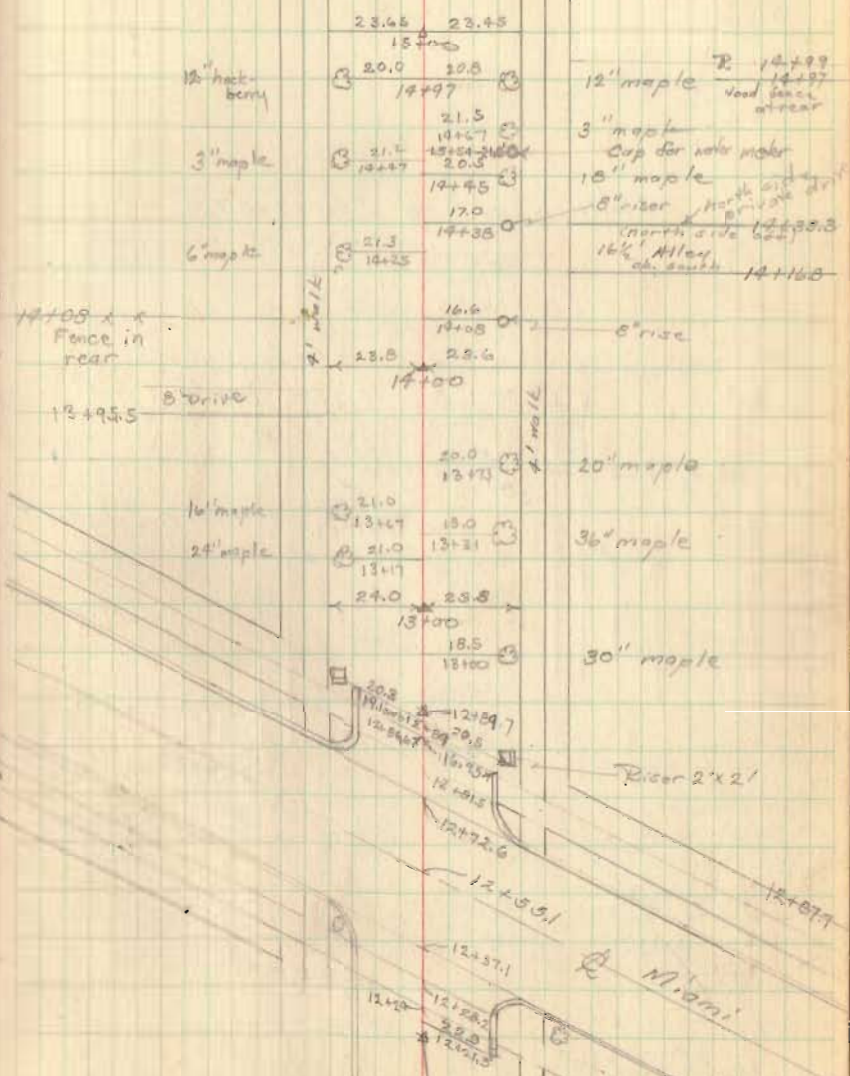 23.65 23.45
15+00
12" hack-
berry
20.0 20.8
14+97
12" maple
14+99
14+97
wood fence
at rear
21.5
14+67
3" maple
Cap for water meter
3" maple
14+47
20.5
14+45
18" maple
17.0
14+38
8" riser
North side
private
(north side
16½' Alley
14+16.8
6" maple
21.3
14+25
14+08 x x
Fence in
rear
4' walk
16.6
14+08
8" rise
23.8 23.6
14+00
8' Drive
13+95.5
4' walk
20.0
13+73
20" maple
16" maple
21.0
13+67
13+31
36" maple
24" maple
21.0
13+17
24.0 23.8
13+00
18.5
13+00
30" maple
20.8
12+89.7
20.5
16.95
Riser 2'x2'
12+81.5
12+72.6
12+87.9
12+55.1
12+37.1
℄ Miami
12+28.2
22.0
12+21.5